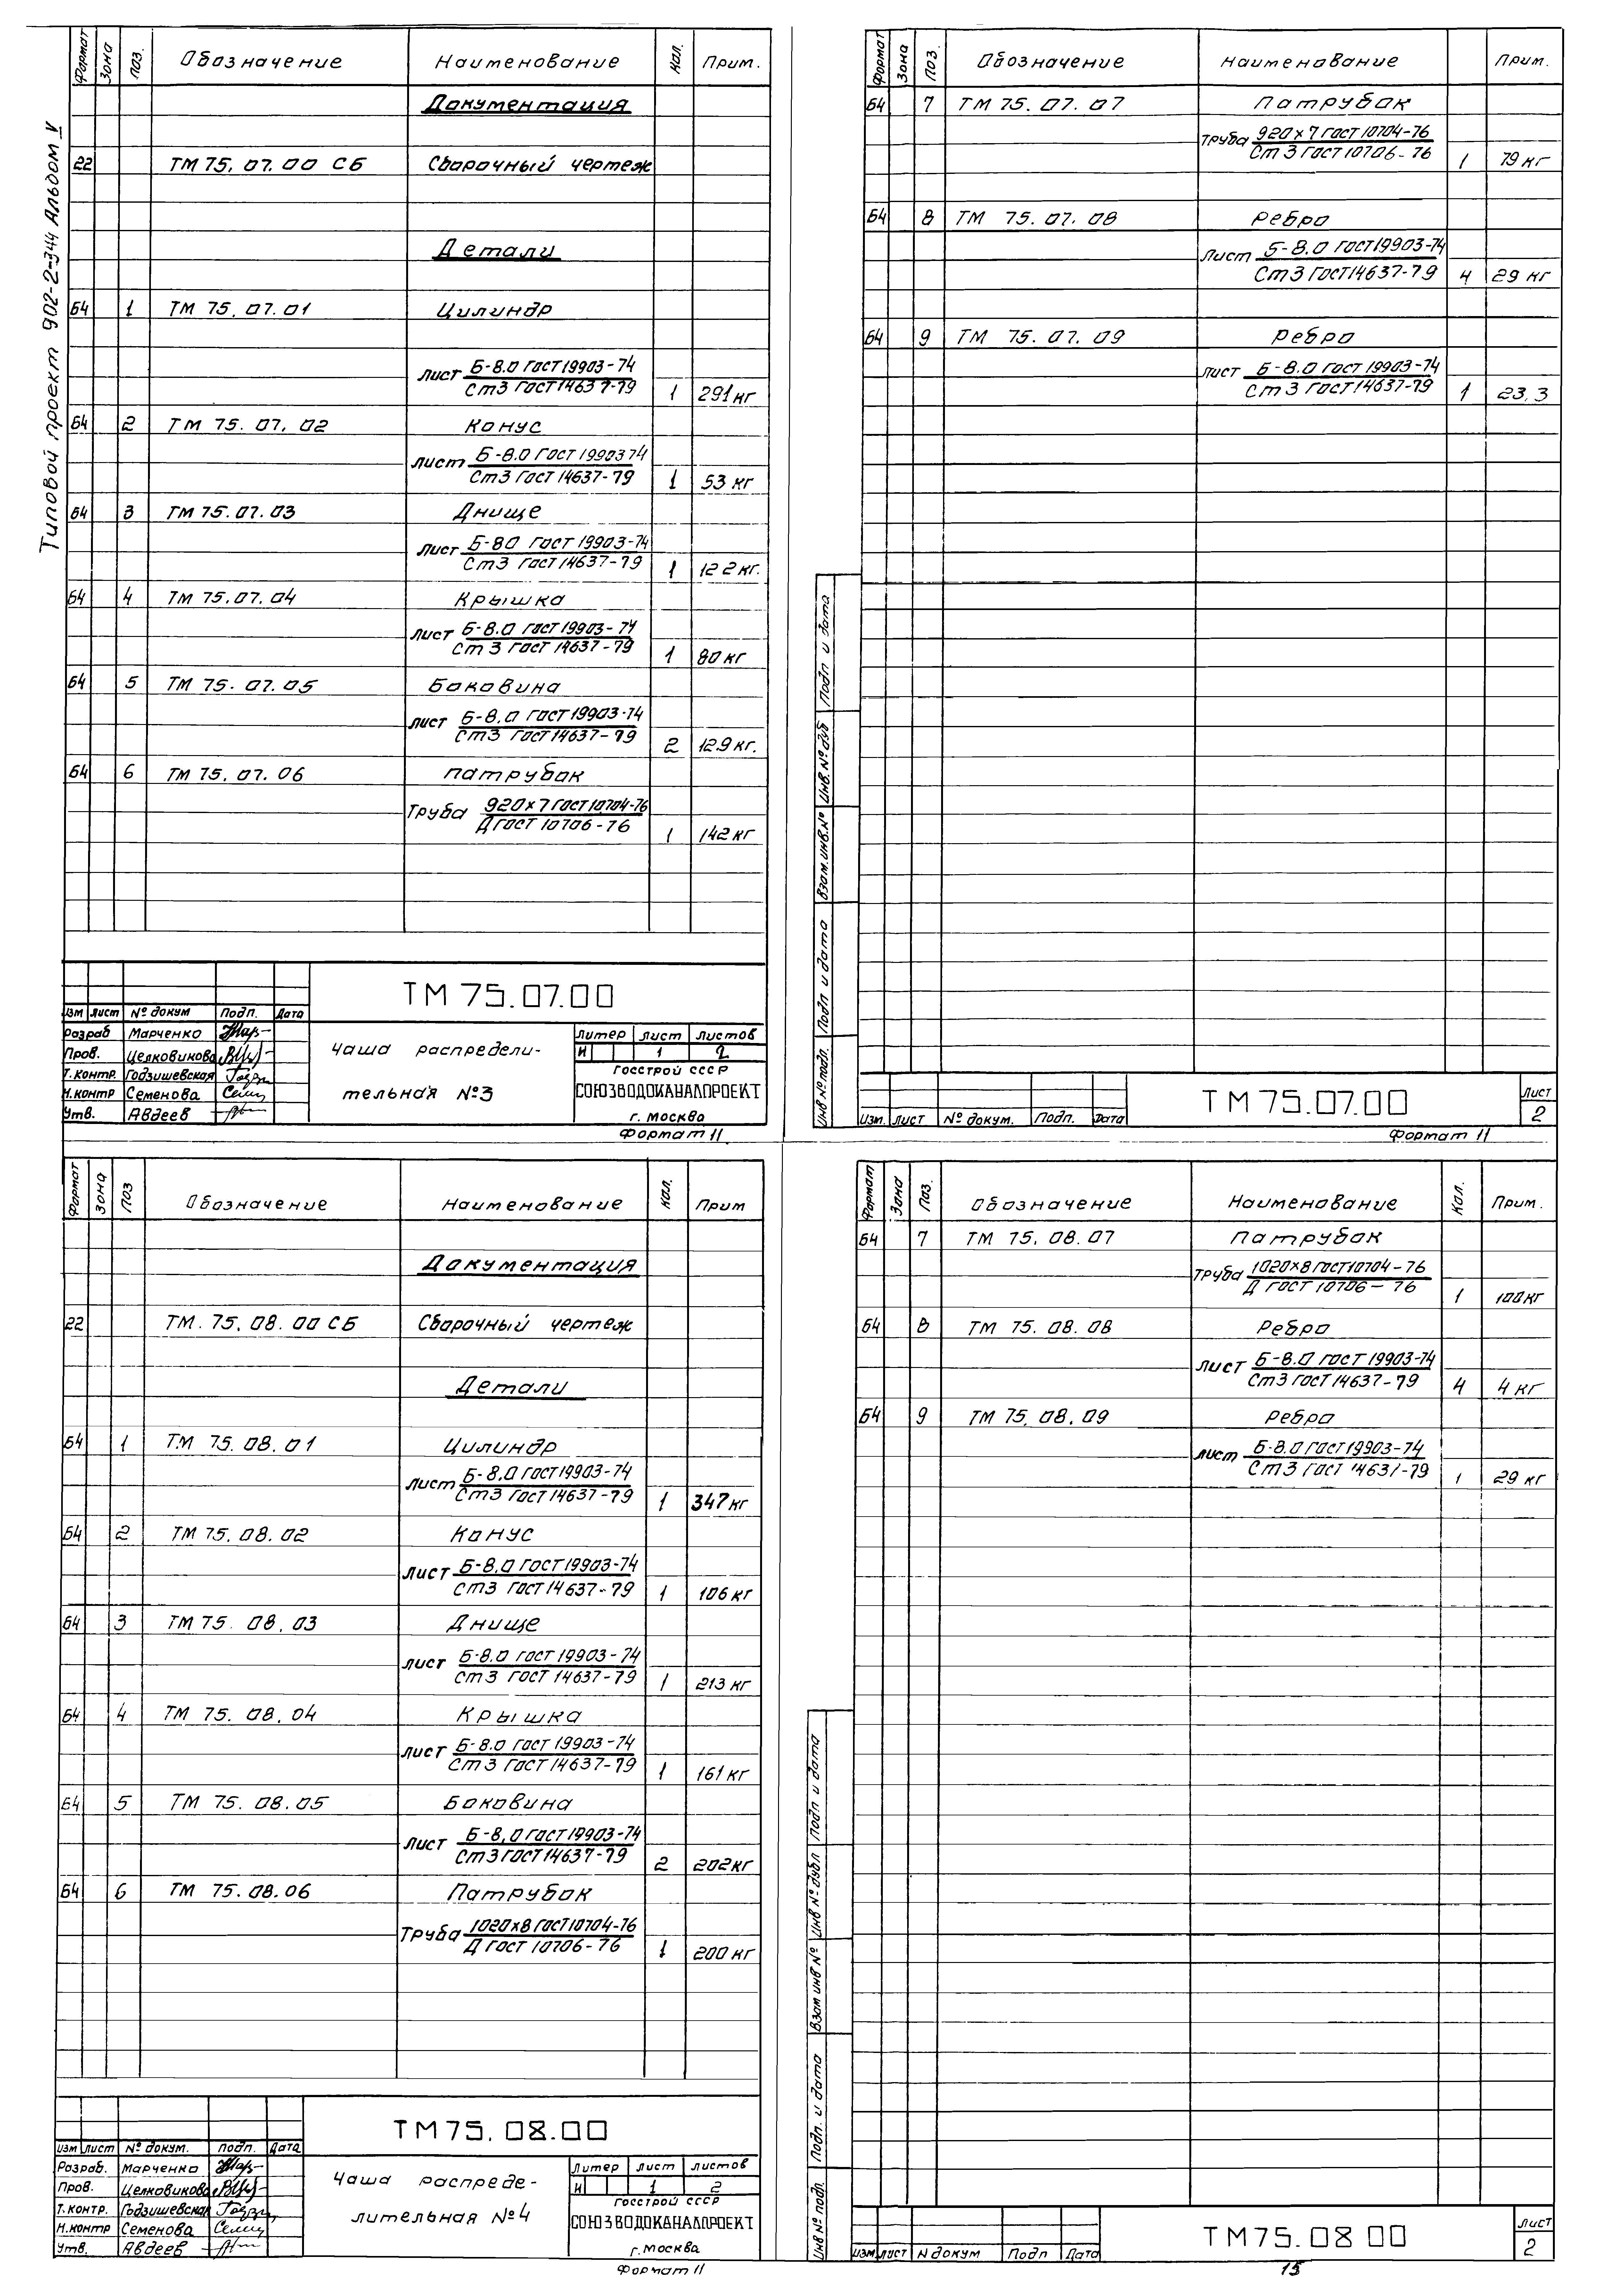 Типовой проект 902-2-344 Альбом V
Формат Зона Поз. Обозначение Наименование Кол. Прим.
Документация
22 ТМ 75.07.00 СБ Сборочный чертеж
Детали
Б4 1 ТМ 75.07.01 Цилиндр
Лист Б-8.0 ГОСТ 19903-74
Ст3 ГОСТ 14637-79 1 291 кг
Б4 2 ТМ 75.07.02 Конус
Лист Б-8.0 ГОСТ 19903 74
Ст3 ГОСТ 14637-79 1 53 кг
Б4 3 ТМ 75.07.03 Днище
Лист Б-80 ГОСТ 19903-74
Ст3 ГОСТ 14637-79 1 122 кг.
Б4 4 ТМ 75.07.04 Крышка
Лист Б-8.0 ГОСТ 19903-74
Ст3 ГОСТ 14637-79 1 80 кг
Б4 5 ТМ 75.07.05 Боковина
Лист Б-8.0 ГОСТ 19903-74
Ст3 ГОСТ 14637-79 2 129 кг.
Б4 6 ТМ 75.07.06 Патрубок
Труба 920×7 ГОСТ 10704-76
Д ГОСТ 10706-76 1 142 кг
ТМ 75.07.00
Изм Лист № докум Подп. Дата
Разраб Марченко
Пров. Целковикова
Т.контр. Годзишевская
Н.контр Семенова
Утв. Авдеев
Чаша распредели-
тельная №3
Литер Лист Листов
И 1 2
Госстрой СССР
СОЮЗВОДОКАНАЛПРОЕКТ
г. Москва
Формат 11
Формат Зона Поз. Обозначение Наименование Прим.
Б4 7 ТМ 75.07.07 Патрубок
Труба 920×7 ГОСТ 10704-76
Ст 3 ГОСТ 10706-76 1 79 кг
Б4 8 ТМ 75.07.08 Ребро
Лист Б-8.0 ГОСТ 19903-74
Ст3 ГОСТ 14637-79 4 29 кг
Б4 9 ТМ 75.07.09 Ребро
Лист Б-8.0 ГОСТ 19903-74
Ст3 ГОСТ 14637-79 1 23.3
Инв № подл. Подп и дата Взам.инв.№ Инв.№ дуб Подп и дата
Изм. Лист № докум. Подп. Дата
ТМ 75.07.00
Лист
2
Формат 11
Формат Зона Поз Обозначение Наименование Кол. Прим
Документация
22 ТМ. 75.08.00 СБ Сборочный чертеж
Детали
Б4 1 ТМ 75.08.01 Цилиндр
Лист Б-8.0 ГОСТ 19903-74
Ст3 ГОСТ 14637-79 1 347 кг
Б4 2 ТМ 75.08.02 Конус
Лист Б-8.0 ГОСТ 19903-74
Ст3 ГОСТ 14637-79 1 106 кг
Б4 3 ТМ 75.08.03 Днище
Лист Б-8.0 ГОСТ 19903-74
Ст3 ГОСТ 14637-79 1 213 кг
Б4 4 ТМ 75.08.04 Крышка
Лист Б-8.0 ГОСТ 19903-74
Ст3 ГОСТ 14637-79 1 161 кг
Б4 5 ТМ 75.08.05 Боковина
Лист Б-8,0 ГОСТ 19903-74
Ст3 ГОСТ 14637-79 2 202 кг
Б4 6 ТМ 75.08.06 Патрубок
Труба 1020×8 ГОСТ 10704-76
Д ГОСТ 10706-76 1 200 кг
ТМ 75.08.00
Изм Лист № докум. Подп. Дата
Разраб. Марченко
Пров. Целковикова
Т.контр. Годзишевская
Н.контр Семенова
Утв. Авдеев
Чаша распреде-
лительная №4
Литер Лист Листов
И 1 2
Госстрой СССР
СОЮЗВОДОКАНАЛПРОЕКТ
г. Москва
Формат 11
Формат Зона Поз. Обозначение Наименование Кол. Прим.
Б4 7 ТМ 75.08.07 Патрубок
Труба 1020×8 ГОСТ 10704-76
Д ГОСТ 10706-76 1 100 кг
Б4 8 ТМ 75.08.08 Ребро
Лист Б-8.0 ГОСТ 19903-74
Ст3 ГОСТ 14637-79 4 4 кг
Б4 9 ТМ 75.08.09 Ребро
Лист Б-8.0 ГОСТ 19903-74
Ст3 ГОСТ 14637-79 1 29 кг
Инв № подл. Подп. и дата Взам инв № Инв № дубл Подп и дата
Изм Лист N докум Подп Дата
ТМ 75.08 00
Лист
2
15